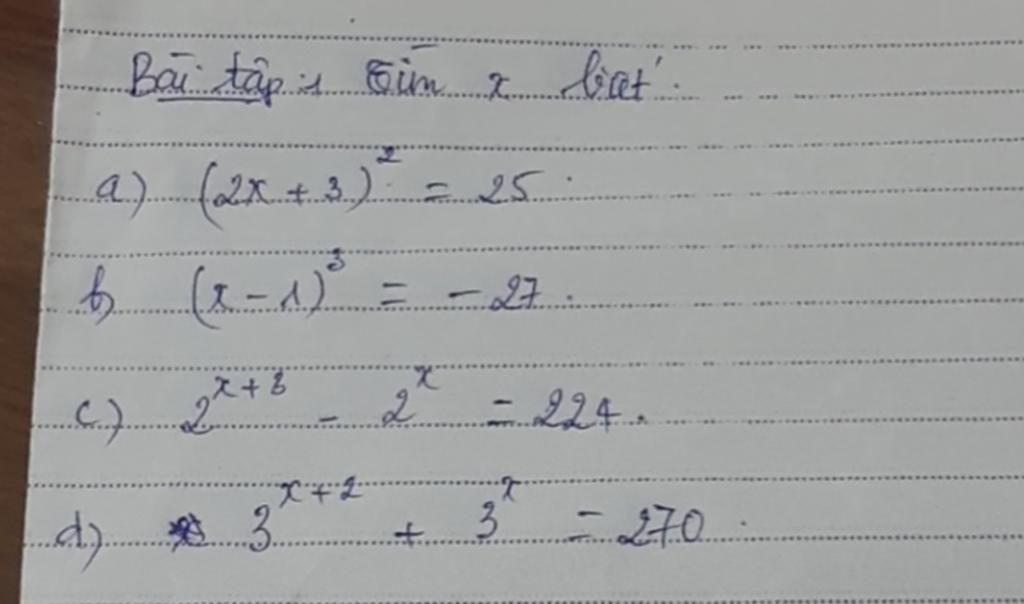 Bài tập 1 Tìm x biết.
a) (2x + 3)² = 25.
b) (x - 1)³ = - 27.
c) 2^{x+3} - 2^x = 224.
d) 3^{x+2} + 3^x = 270.